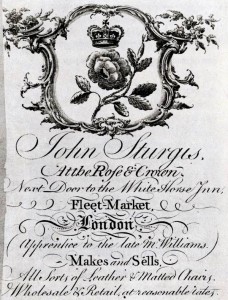 John Sturgis.
At the Rose & Crown,
Next Door to the White Horse Inn;
Fleet-Market,
London
(Apprentice to the late Mr. Williams.)
Makes and Sells
All Sorts of Leather & Matted Chairs,
Wholesale & Retail, at reasonable rates.